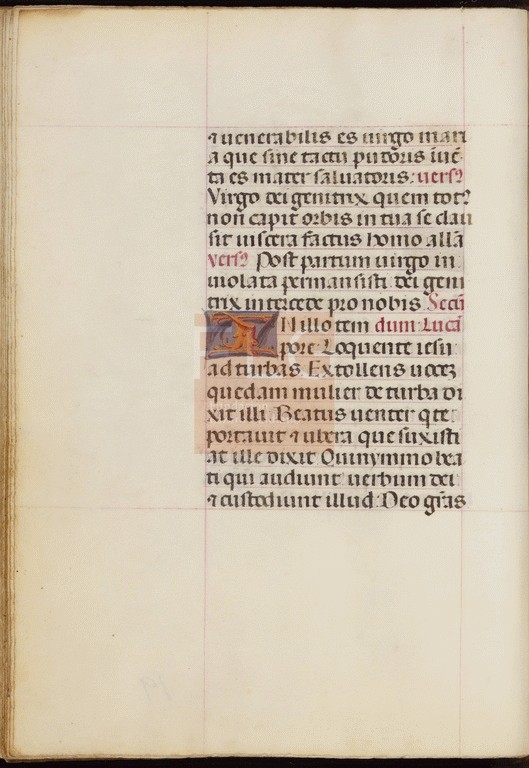 ⁊ venerabilis es uirgo mari
a que sine tactu pudoris īuē
ta es mater saluatoris: uersꝰ
Virgo dei genitrix quem totꝰ
non capit orbis in tua se clau
sit uiscera factus homo allā
versꝰ Post partum uirgo in
uiolata permansisti: dei geni
trix intercede pro nobis Secū
IN illo tem dum Lucā
pore: Loquente iesu
ad turbas. Extollens uocē
quedam mulier de turba di
xit illi. Beatus uenter q te
portauit ⁊ ubera que suxisti
at ille dixit Quinymmo bea
ti qui audiunt uerbum dei
⁊ custodiunt illud: Deo grās